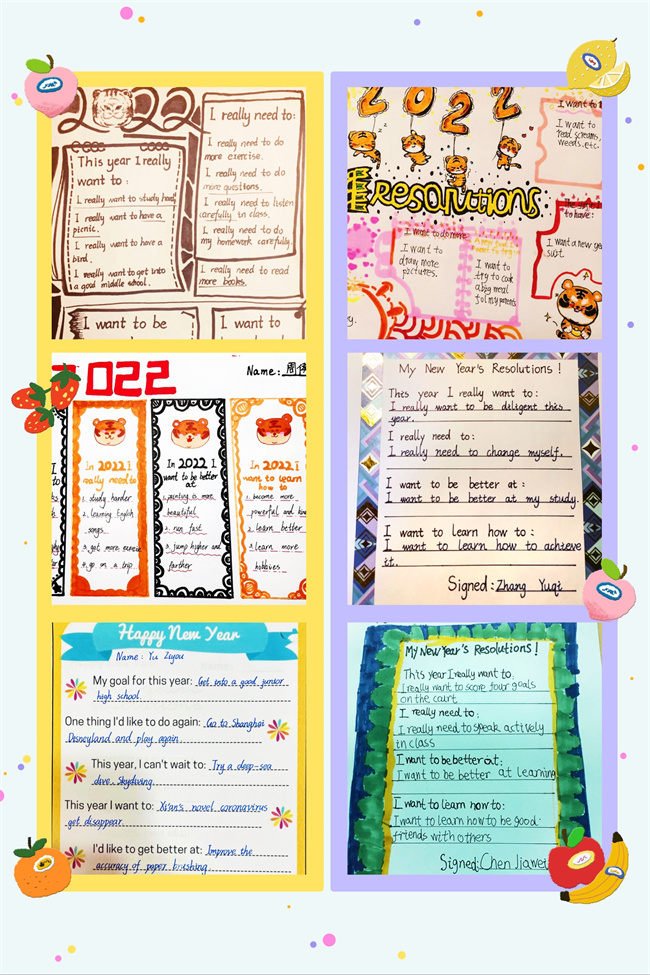 2022
This year I really
want to:
I really want to study hard
I really want to have a
picnic.
I really want to have a
bird.
I really want to get into
a good middle school.
I really need to:
I really need to do
more exercise.
I really need to do
more questions.
I really need to listen
carefully in class.
I really need to do
my homework carefully.
I really need to read
more books.
I want to be
I want to
2022
resolutions
I want to
I want to
read
weeds, etc.
to have:
I want a new yea
suit.
I want to do more
I want to
draw more
pictures.
I want to
try to cook
a big meal
for my parents
2022
Name:
In 2022 I
really need to
1. study harder
2. learning English
songs
3. get more exercise
4. go on a trip
In 2022 I
want to be better
at
1. painting is more
beautiful
2. run fast
3. jump higher and
farther
In 2022 I
want to learn
how to
1. become more
powerful and
2. learn better
3. learn more
hobbies
My New Year's Resolutions!
This year I really want to:
I really want to be diligent this
year.
I really need to:
I really need to change myself.
I want to be better at:
I want to be better at my study.
I want to learn how to:
I want to learn how to achieve
it.
Signed: Zhang Yuqi
Happy New Year
Name: Yu Ziyou
My goal for this year: Get into a good junior
high school.
One thing I'd like to do again: Go to Shanghai
Disneyland and play again
This year, I can't wait to: Try a deep-sea
dive. Skydiving
This year I want to: Xi'an's novel coronavirus
get disappear.
I'd like to get better at: Improve the
accuracy of paper brushing
My New Year's Resolutions!
This year I really want to:
I really want to score four goals
on the court
I really need to:
I really need to speak actively
in class
I want to be better at:
I want to be better at learning
I want to learn how to:
I want to learn how to be good
friends with others
Signed: Chen Jiawei